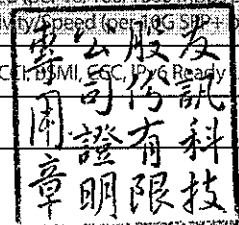 vity/Speed (per 10G SFP+
BSMI, CCC, IPv6 Ready
友訊科技
股份有限
公司證明
專用章